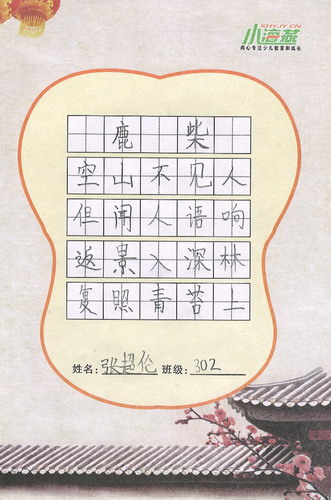 XHYJY.CN
小海燕
用心专注少儿教育和成长
鹿柴
空山不见人
但闻人语响
返景入深林
复照青苔上
姓名:张超伦 班级:302